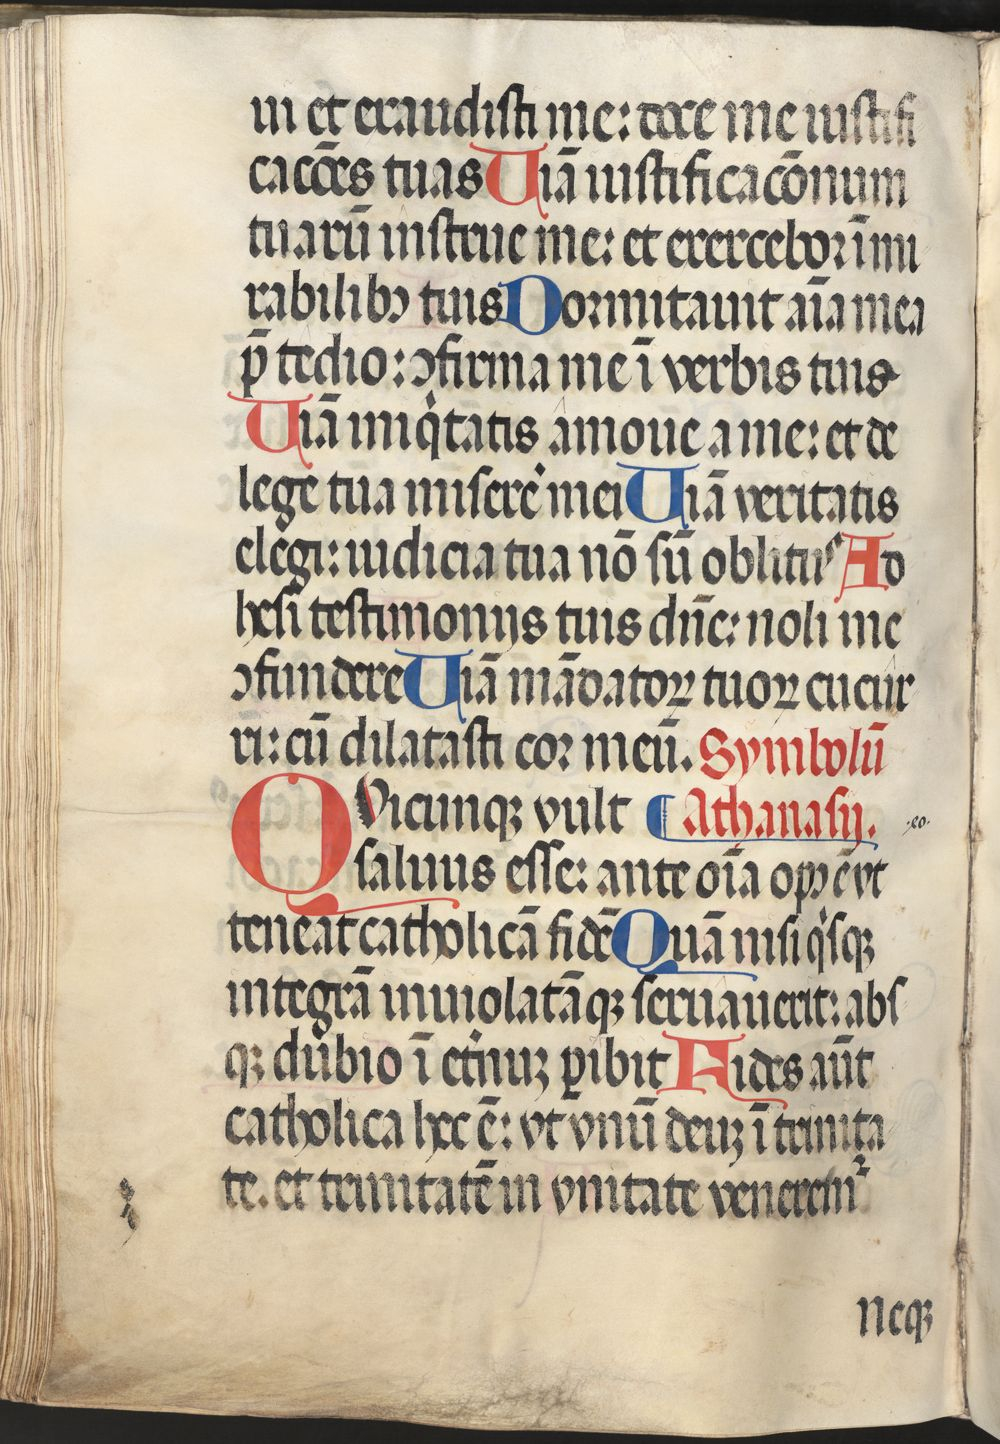 ui et exaudisti me: doce me iustifi
cacōēs tuas Uiā iustificacōnum
tuarū instrue me: et exercebor ī mi
rabilibꝯ tuis Dormitauit aīa mea
p̄ tedio: ꝯfirma me ī verbis tuis
Uiā iniqͥtatis amoue a me: et de
lege tua miserē mei Uiā veritatis
elegi: iudicia tua nō sū oblitus Ad
hesi testimonijs tuis dn̄e: noli me
ꝯfundere Uiā mādatoꝝ tuoꝝ cucur
ri: cū dilatasti cor meū. Symbolū
QVicunqꝫ vult Athanasij. .eo.
saluus esse: ante oīa opꝯ ē vt
teneat catholicā fidē Quā nisi qͥsqꝫ
integrā inuiolatāqꝫ seruauerit: abs
qꝫ dubio ī et̓nuꝫ ꝑibit Fides aūt
catholica hec ē: vt vnū deuꝫ ī trinita
te. et trinitatē in vnitate veneremᷣ
Neqꝫ